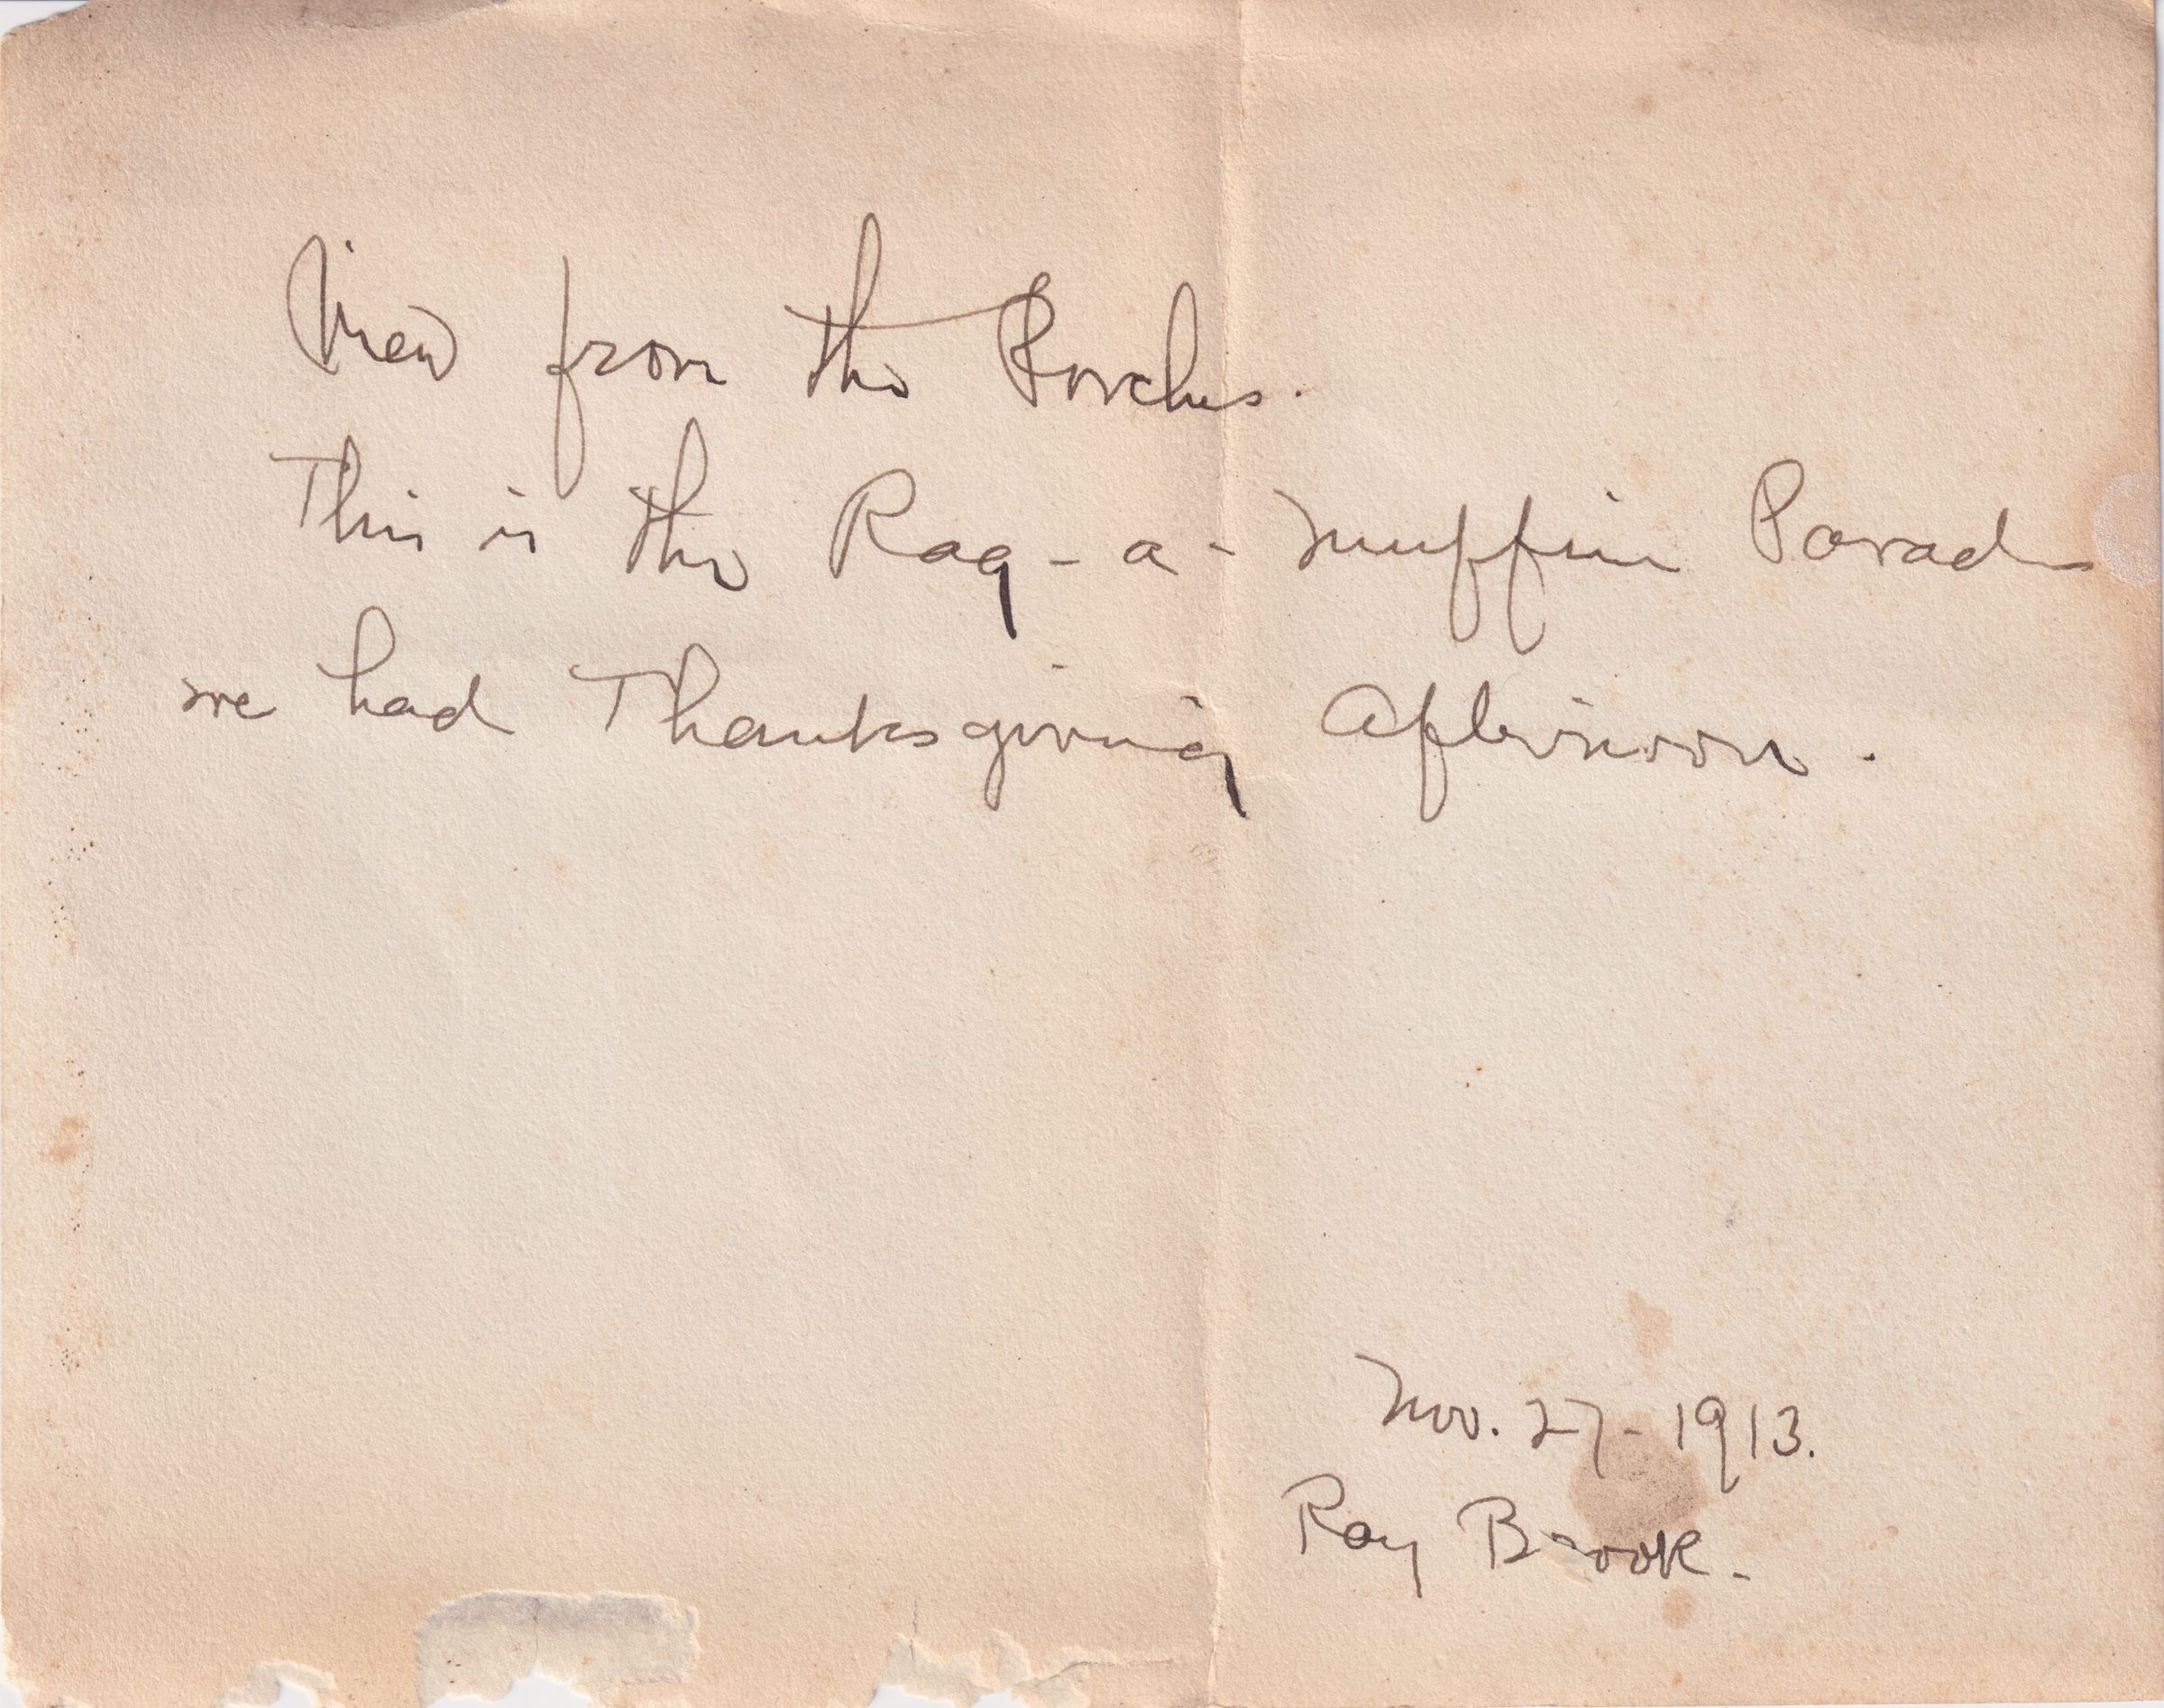 View from the Porches.
This is the Rag-a-muffin Parade
we had Thanksgiving Afternoon.
Nov. 27-1913.
Ray Brook.